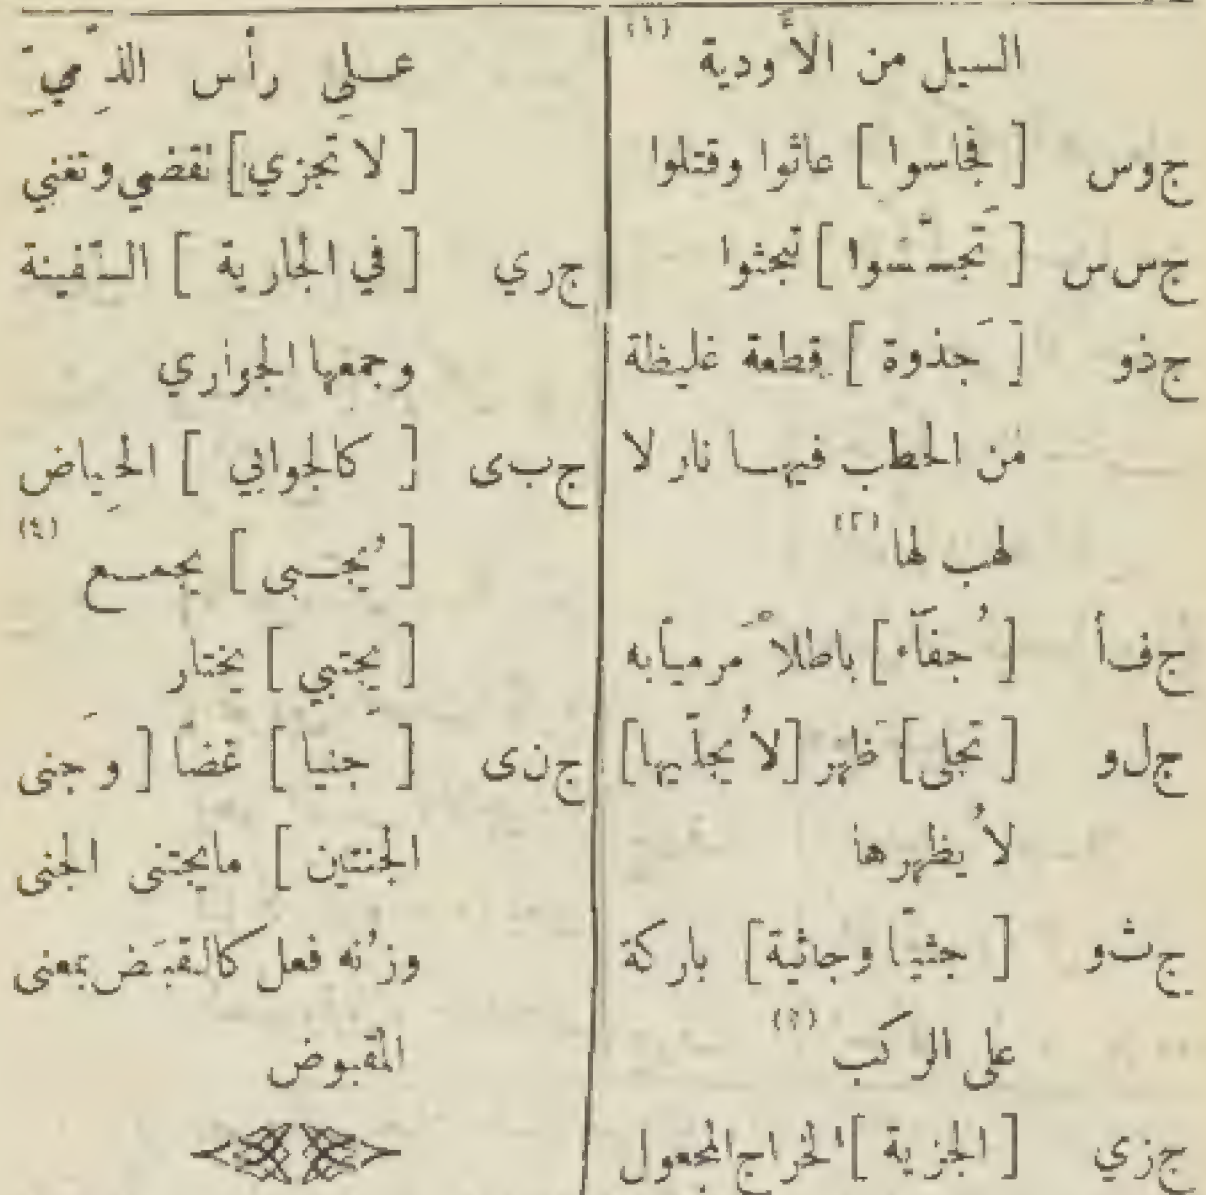 السيل من الأَودية (١)
ج وس [ فجاسوا ] عاثوا وقتلوا
ج س س [ تَجسَّسُوا ] تبحثوا
ج ذو [ جَذوة ] قِطعة غليظة
من الحطب فيها نار لا
لهب لها (٢)
ج ف أ [ جُفآء ] باطلاً مَرمياًبه
ج ل و [ تجلى ] ظَهر [ لا يُجلّيها ]
لا يُظهرها
ج ث و [ جثيّا وجاثية ] باركة
على الركب (٣)
ج زي [ الجزية ] الخراج المجعول
على رأس الذِّميِّ
[ لا تجزي ] تقضي وتغني
ج ري [ في الجارية ] السَّفينة
وجمعها الجواري
ج ب ى [ كالجوابي ] الحِياض
[ يُجـبى ] يجمـع (٤)
[ يجتبي ] يختار
ج ن ى [ جَنيّا ] غضّا [ وجَنى
الجنتين ] مايجتنى الجنى
وزنُه فعل كالقبَض بمعنى
المقبوض